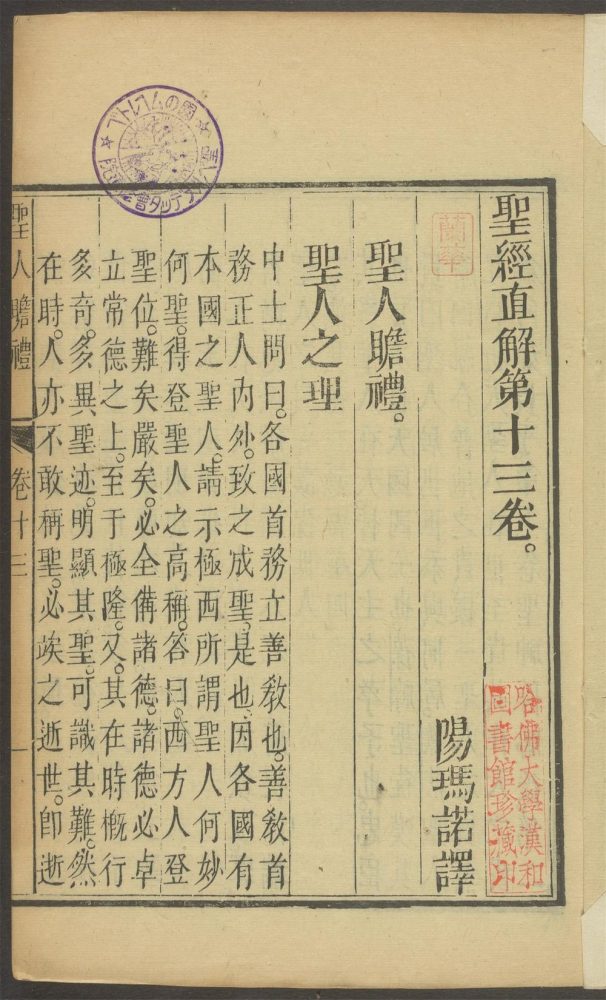 聖經直解第十三卷。
陽瑪諾譯
聖人瞻禮。
聖人之理
中士問曰。各國首務立善教也。善教首
務正人內外。致之成聖。是也。因各國有
本國之聖人。請示極西所謂聖人何妙
何聖。得登聖人之高稱。答曰。西方人登
聖位。難矣嚴矣。必全備諸德。諸德必卓
立常德之上。至于極隆。又。其在時槪行
多奇。多異聖迹。明顯其聖。可識其難。然
在時。人亦不敢稱聖。必竢之逝世。卽逝
聖人瞻禮
卷十三
一
哈佛大學漢和
圖書館珍藏印